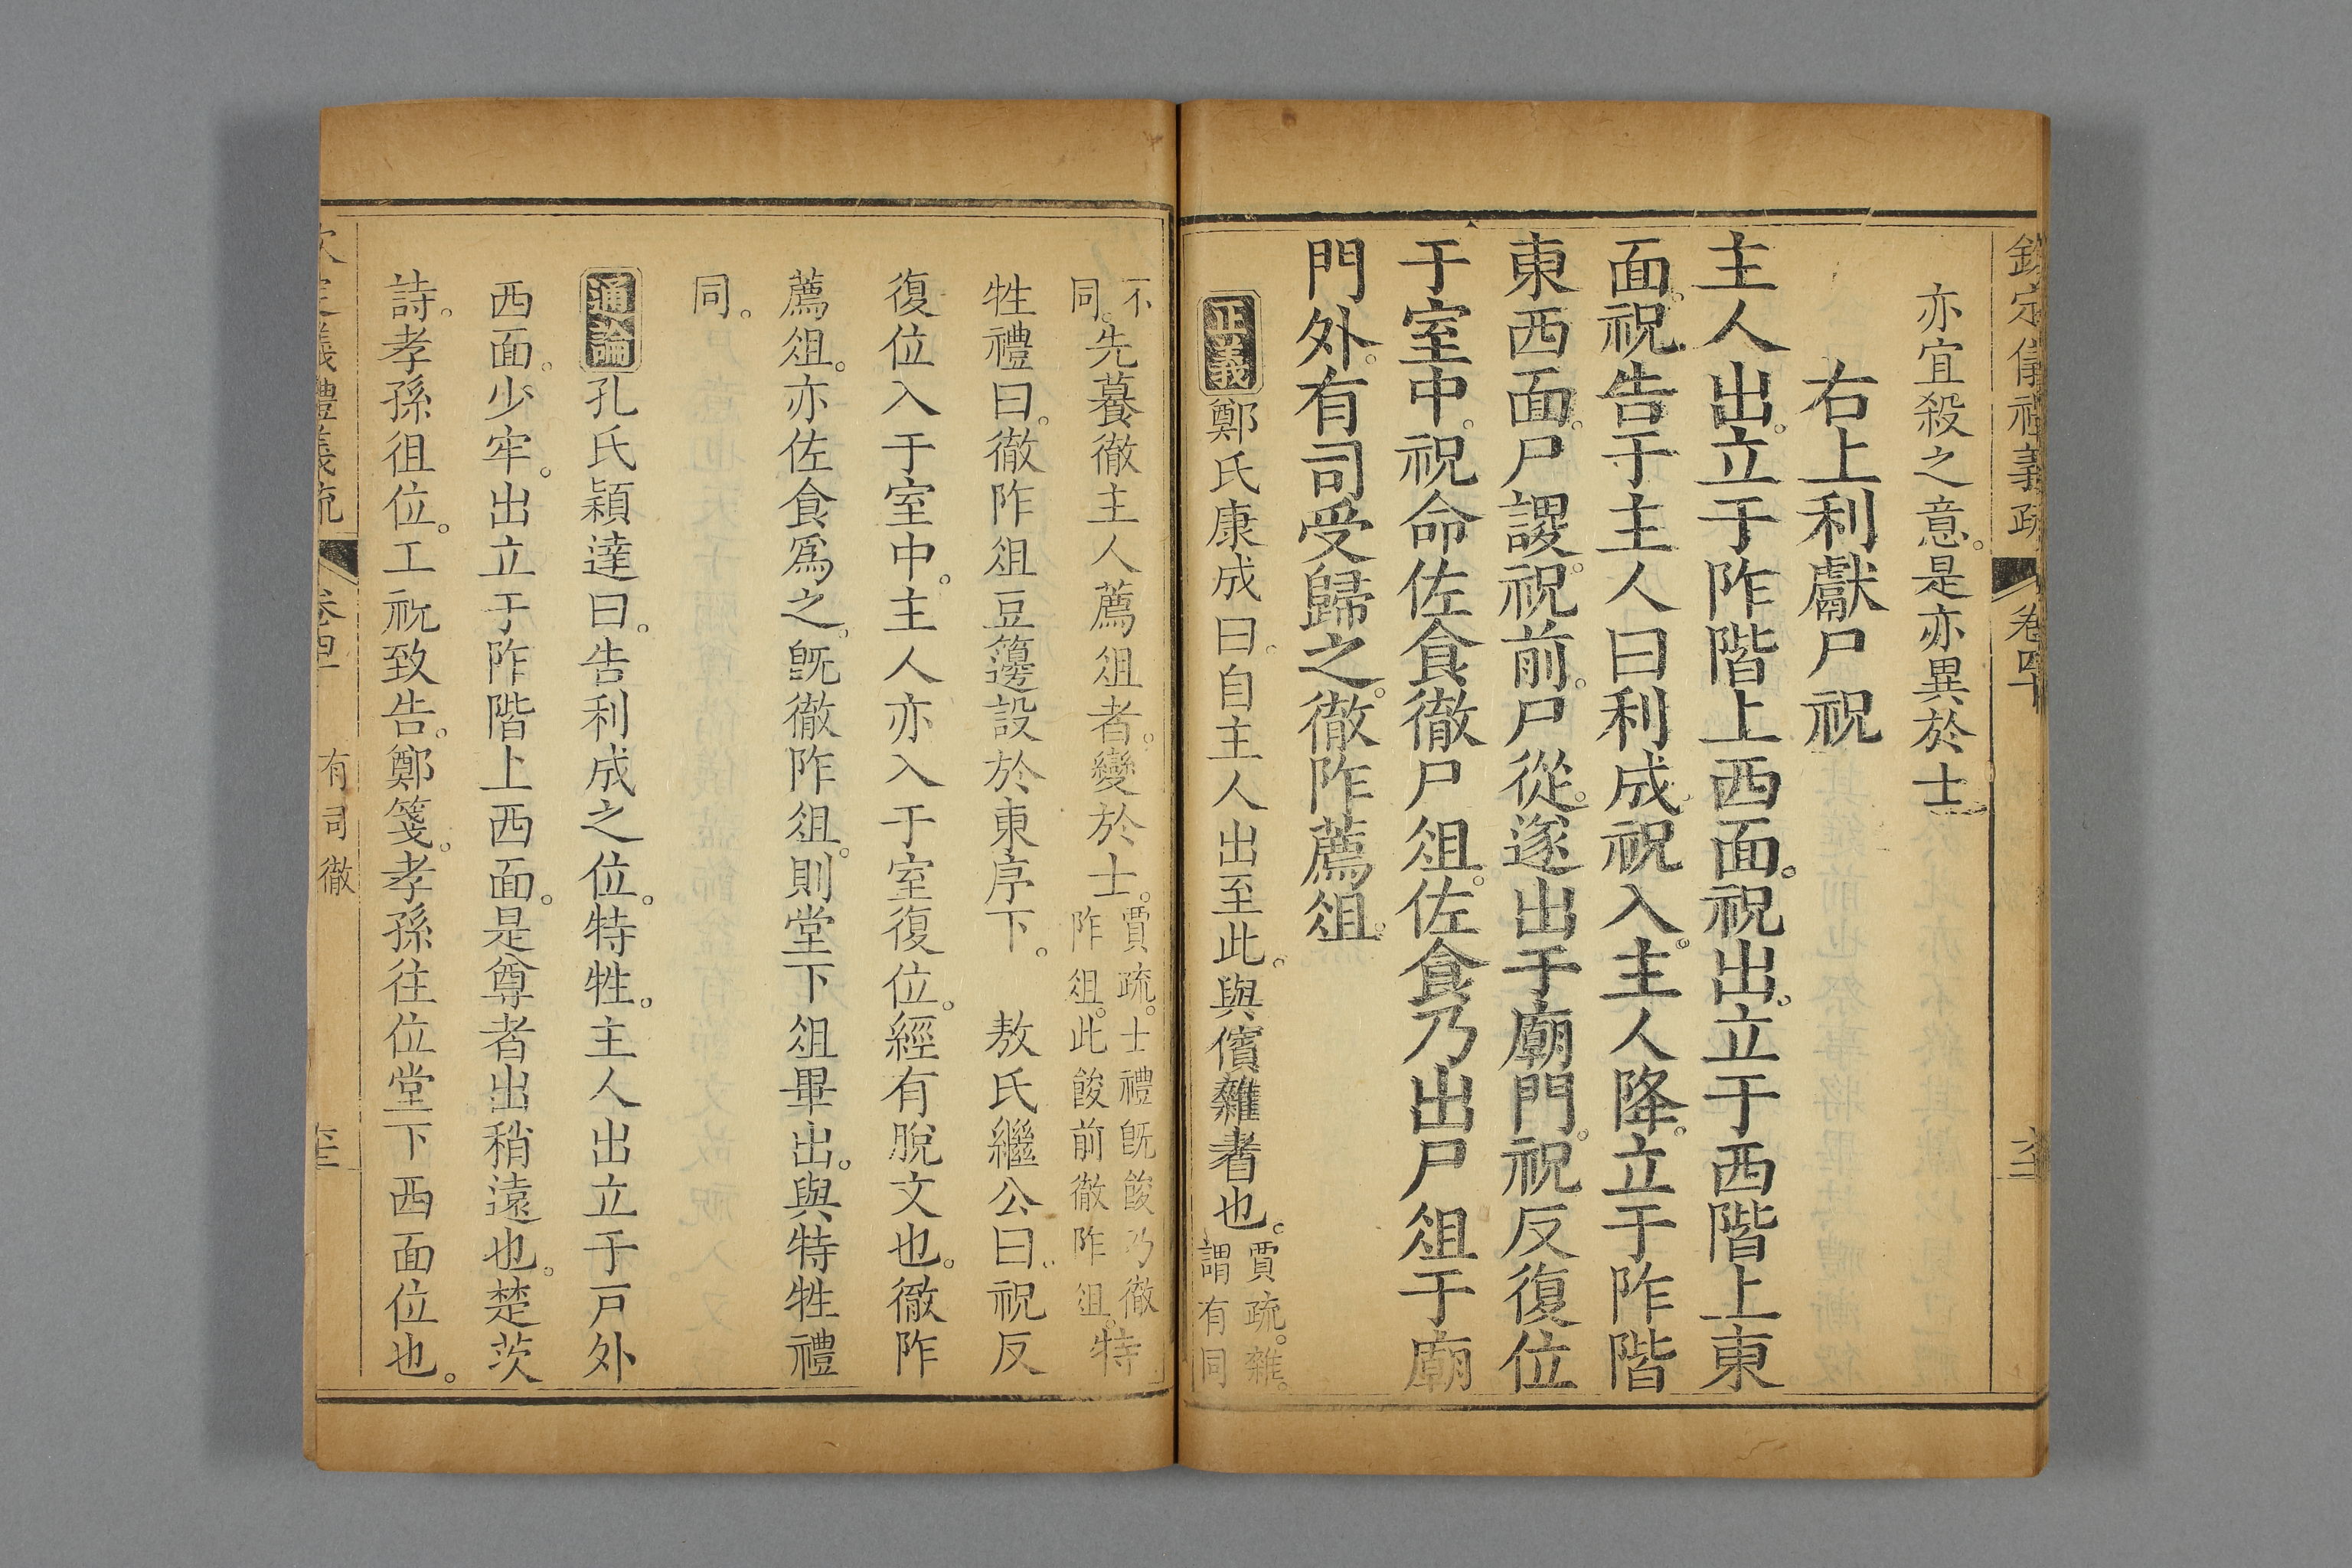 欽定儀禮義疏 卷四十
亦宜殺之意。是亦異於士。
右上利獻尸祝
主人出。立于阼階上西面。祝出。立于西階上東
面。祝告于主人曰利成。祝入。主人降。立于阼階
東西面。尸謖。祝前。尸從。遂出于廟門。祝反復位
于室中。祝命佐食徹尸俎。佐食乃出尸俎于廟
門外。有司受歸之。徹阼薦俎。
正義鄭氏康成曰。自主人出至此。與儐雜者也。賈疏。雜。謂有同
不同。先養徹主人薦俎者。變於士。賈疏。士禮旣餕乃徹阼俎。此餕前徹阼俎。特
牲禮曰。徹阼俎豆籩設於東序下。 敖氏繼公曰。祝反
復位入于室中。主人亦入于室復位。經有脫文也。徹阼
薦俎。亦佐食爲之。旣徹阼俎。則堂下俎畢出。與特牲禮
同。
通論孔氏穎達曰。告利成之位。特牲。主人出立于戸外
西面。少牢。出立于阼階上西面。是尊者出稍遠也。楚茨
詩。孝孫徂位。工祝致告。鄭箋。孝孫往位堂下西面位也。
有司徹